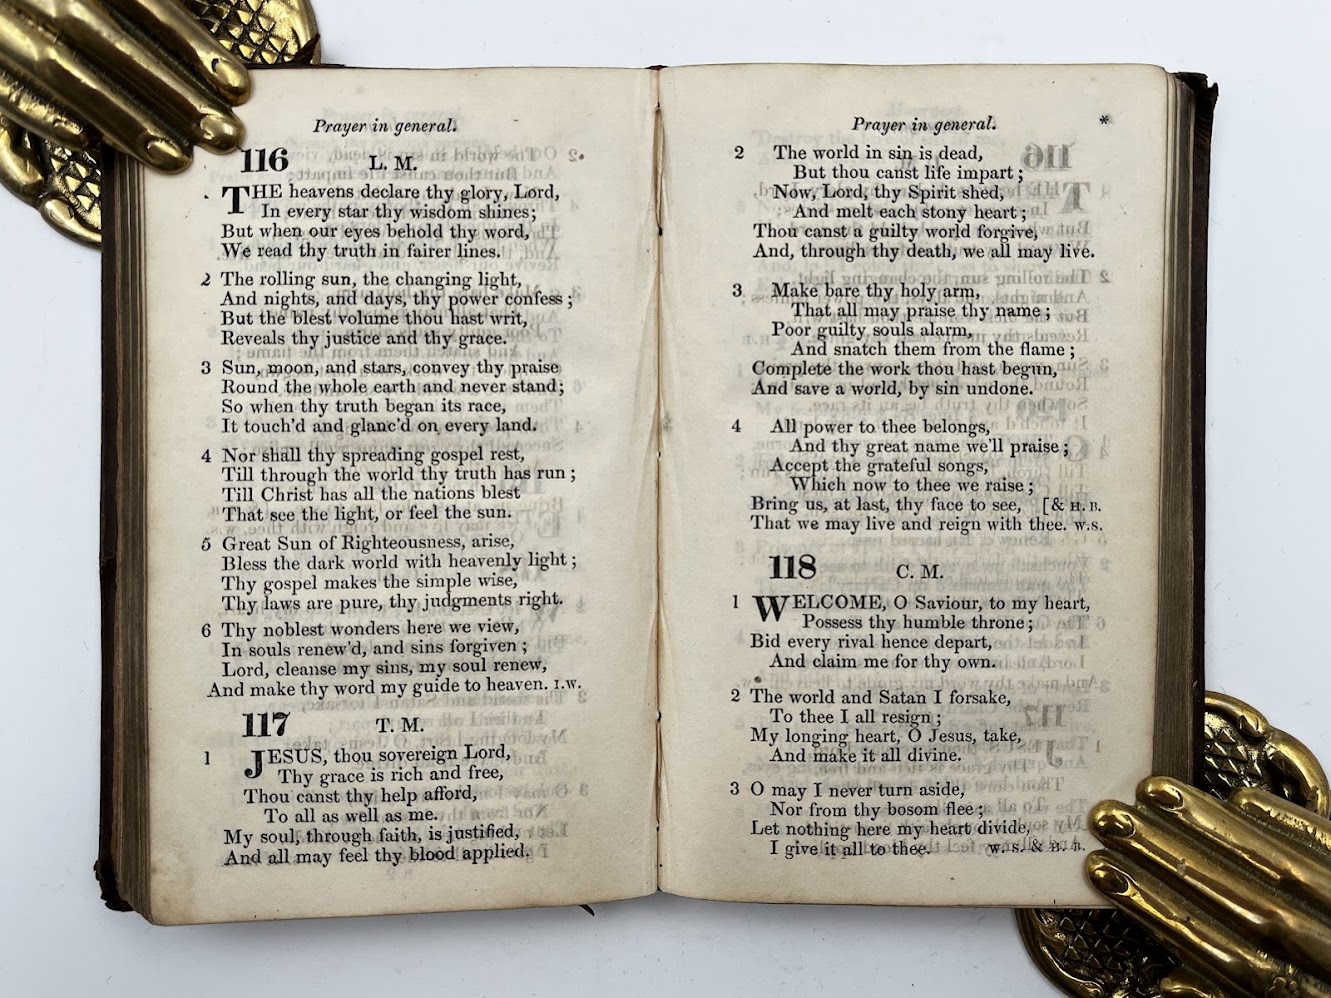 Prayer in general.
116 L. M.
THE heavens declare thy glory, Lord,
In every star thy wisdom shines;
But when our eyes behold thy word,
We read thy truth in fairer lines.
2 The rolling sun, the changing light,
And nights, and days, thy power confess;
But the blest volume thou hast writ,
Reveals thy justice and thy grace.
3 Sun, moon, and stars, convey thy praise
Round the whole earth and never stand;
So when thy truth began its race,
It touch'd and glanc'd on every land.
4 Nor shall thy spreading gospel rest,
Till through the world thy truth has run;
Till Christ has all the nations blest
That see the light, or feel the sun.
5 Great Sun of Righteousness, arise,
Bless the dark world with heavenly light;
Thy gospel makes the simple wise,
Thy laws are pure, thy judgments right.
6 Thy noblest wonders here we view,
In souls renew'd, and sins forgiven;
Lord, cleanse my sins, my soul renew,
And make thy word my guide to heaven. I.W.
117 T. M.
1 JESUS, thou sovereign Lord,
Thy grace is rich and free,
Thou canst thy help afford,
To all as well as me.
My soul, through faith, is justified,
And all may feel thy blood applied.
Prayer in general. *
2 The world in sin is dead,
But thou canst life impart;
Now, Lord, thy Spirit shed,
And melt each stony heart;
Thou canst a guilty world forgive,
And, through thy death, we all may live.
3 Make bare thy holy arm,
That all may praise thy name;
Poor guilty souls alarm,
And snatch them from the flame;
Complete the work thou hast begun,
And save a world, by sin undone.
4 All power to thee belongs,
And thy great name we'll praise;
Accept the grateful songs,
Which now to thee we raise;
Bring us, at last, thy face to see, [& H. B.
That we may live and reign with thee. W.S.
118 C. M.
1 WELCOME, O Saviour, to my heart,
Possess thy humble throne;
Bid every rival hence depart,
And claim me for thy own.
2 The world and Satan I forsake,
To thee I all resign;
My longing heart, O Jesus, take,
And make it all divine.
3 O may I never turn aside,
Nor from thy bosom flee;
Let nothing here my heart divide,
I give it all to thee. W. S. & H. B.